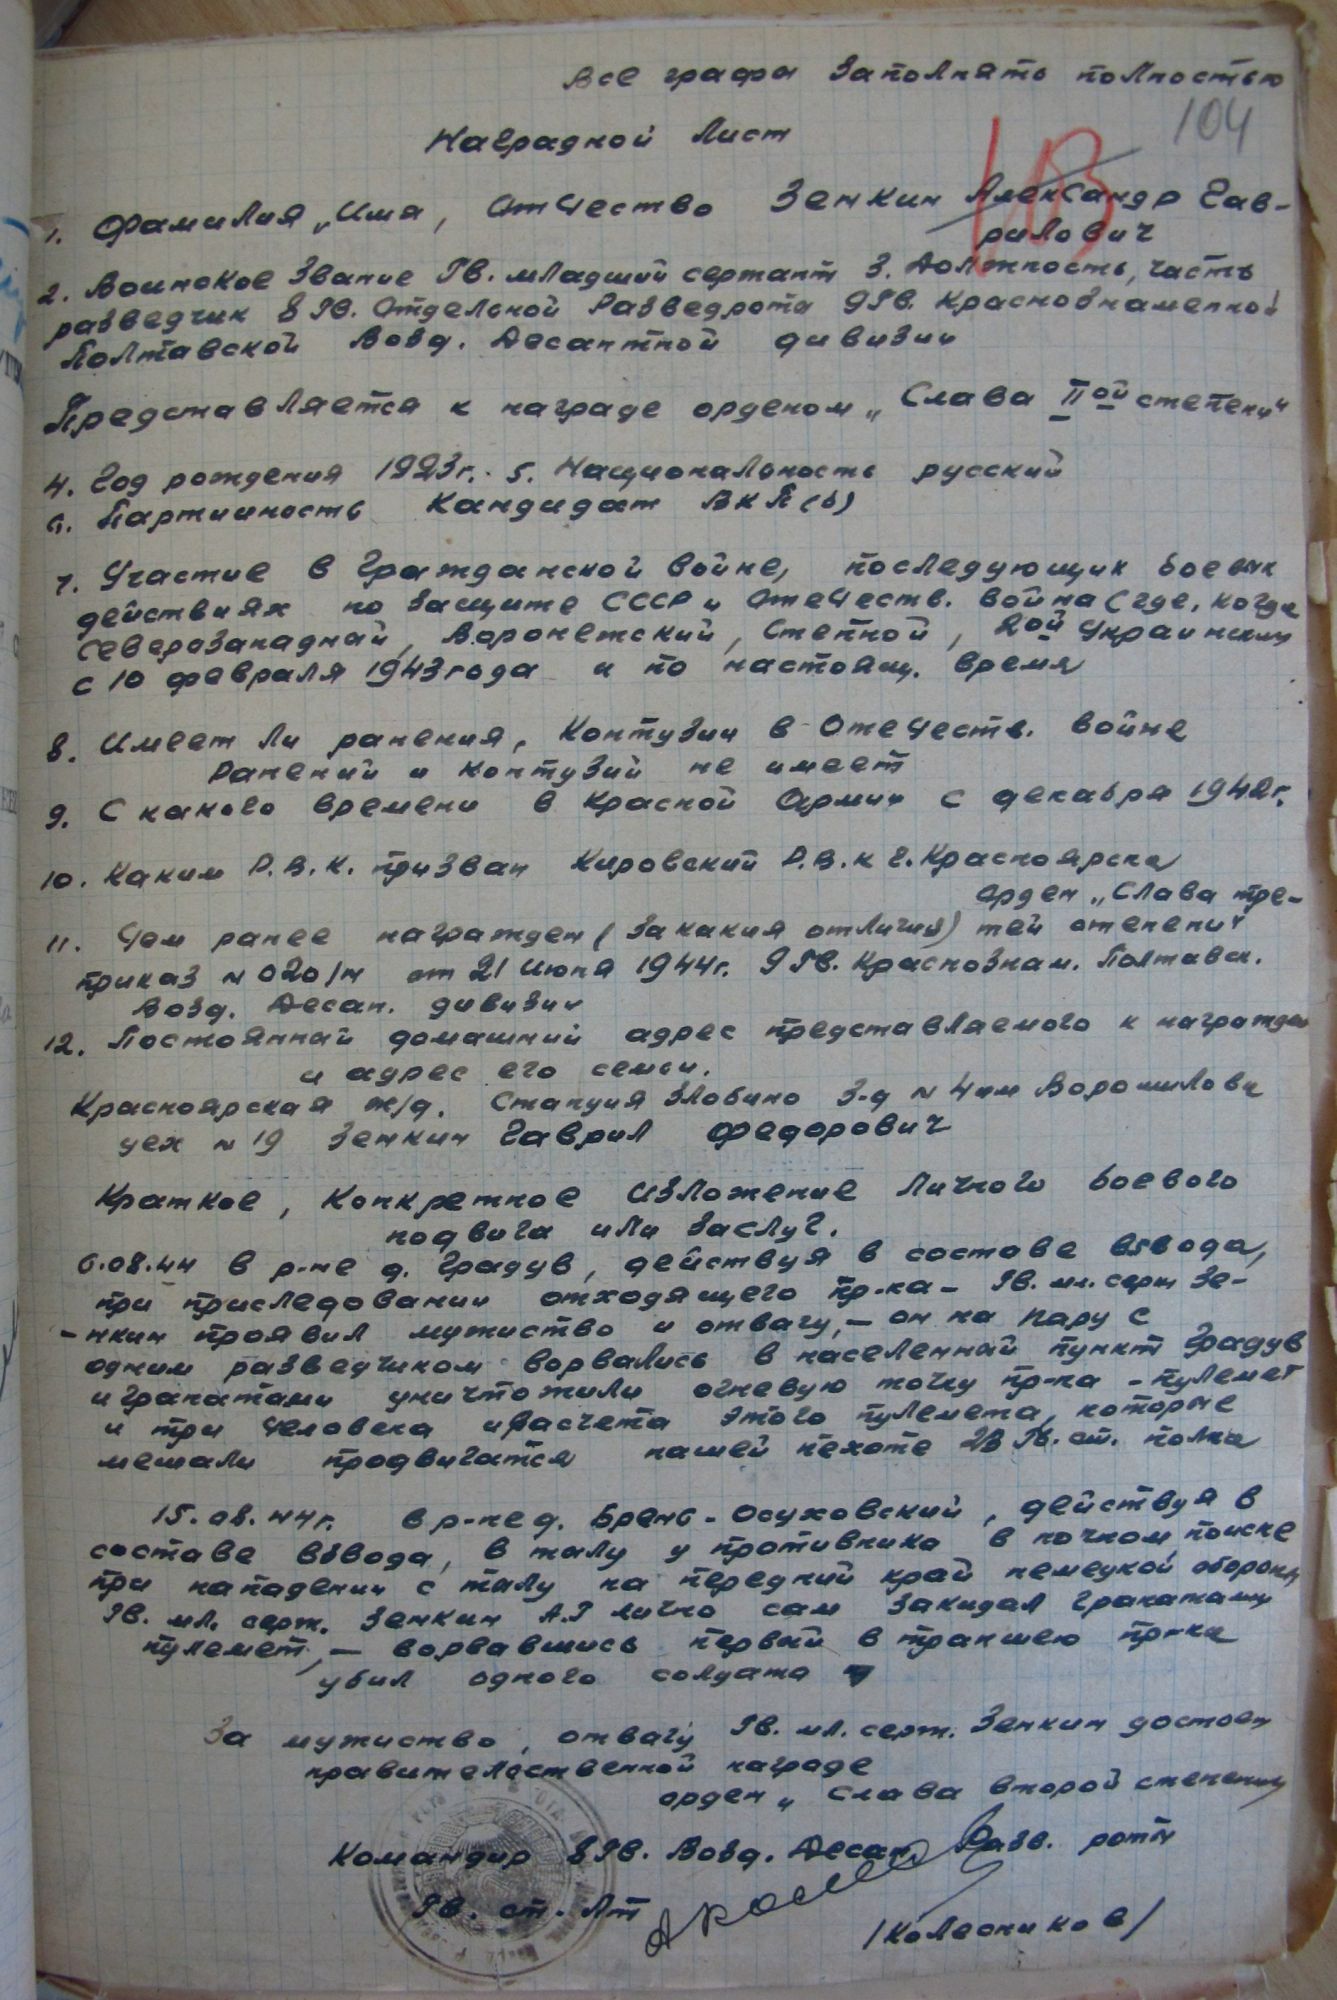 Все графы заполнять полностью
104
103
Наградной Лист
1. Фамилия, Имя, Отчество Зенкин Александр Гав-
рилович
2. Воинское звание Гв. младший сержант 3. Должность, часть
разведчик 8 Гв. Отдельной Разведрота 9 Гв. Краснознаменной
Полтавской Возд. Десантной дивизии
Представляется к награде орденом „Слава IIой степени"
4. Год рождения 1923г. 5. Национальность русский
6. Партийность Кандидат ВКП(б)
7. Участие в Гражданской войне, последующих боевых
действиях по защите СССР и отечеств. война (где, когда
Северозападный, Воронежский, Степной, 2ой Украинский
с 10 февраля 1943 года и по настоящ. время
8. Имеет ли ранения, контузии в Отечеств. войне
Ранений и контузий не имеет
9. С какого времени в Красной Армии с декабря 1942г.
10. Каким Р.В.К. призван Кировский Р.В.К г. Красноярска
орден „Слава тре-
11. Чем ранее награжден (за какия отличия) тей степени"
приказ № 020/н от 21 Июня 1944г. 9 Гв. Краснознам. Полтавск.
Возд. Десан. дивизии
12. Постоянный домашний адрес представляемого к награжден
и адрес его семьи.
Красноярская ж/д. Станция Злобино З-д № 4 им Ворошилова
цех № 19 Зенкин Гаврил Федорович
Краткое, Конкретное изложение личного боевого
подвига или заслуг.
6.08.44 в р-не д. Градув, действуя в составе взвода,
при приследовании отходящего пр-ка – Гв. мл. серж Зе-
-нкин проявил мужиство и отвагу, – он на пару с
одним разведчиком ворвались в населенный пункт Градув
и гранатами уничтожили огневую точку пр-ка – пулемет
и три человека и расчета этого пулемета, которые
мешали продвигатся нашей пехоте 23 Гв. ст. полка
15.08.44г. в р-не д. Брень-Осуховский, действуя в
составе взвода, в тылу у противника в ночном поиске
при нападении с тылу на передний край немецкой обороны
Гв. мл. серж. Зенкин А.Г лично сам закидал гранатами
пулемет, – ворвавшись первый в траншею пр-ка
убил одного солдата
За мужиство, отвагу Гв. мл. серж. Зенкин достоен
правительственной награде
орден „Слава второй степени"
Командир 8 Гв. Возд. Десан. Разв. роты
Гв. ст. Лт
/Колесников/